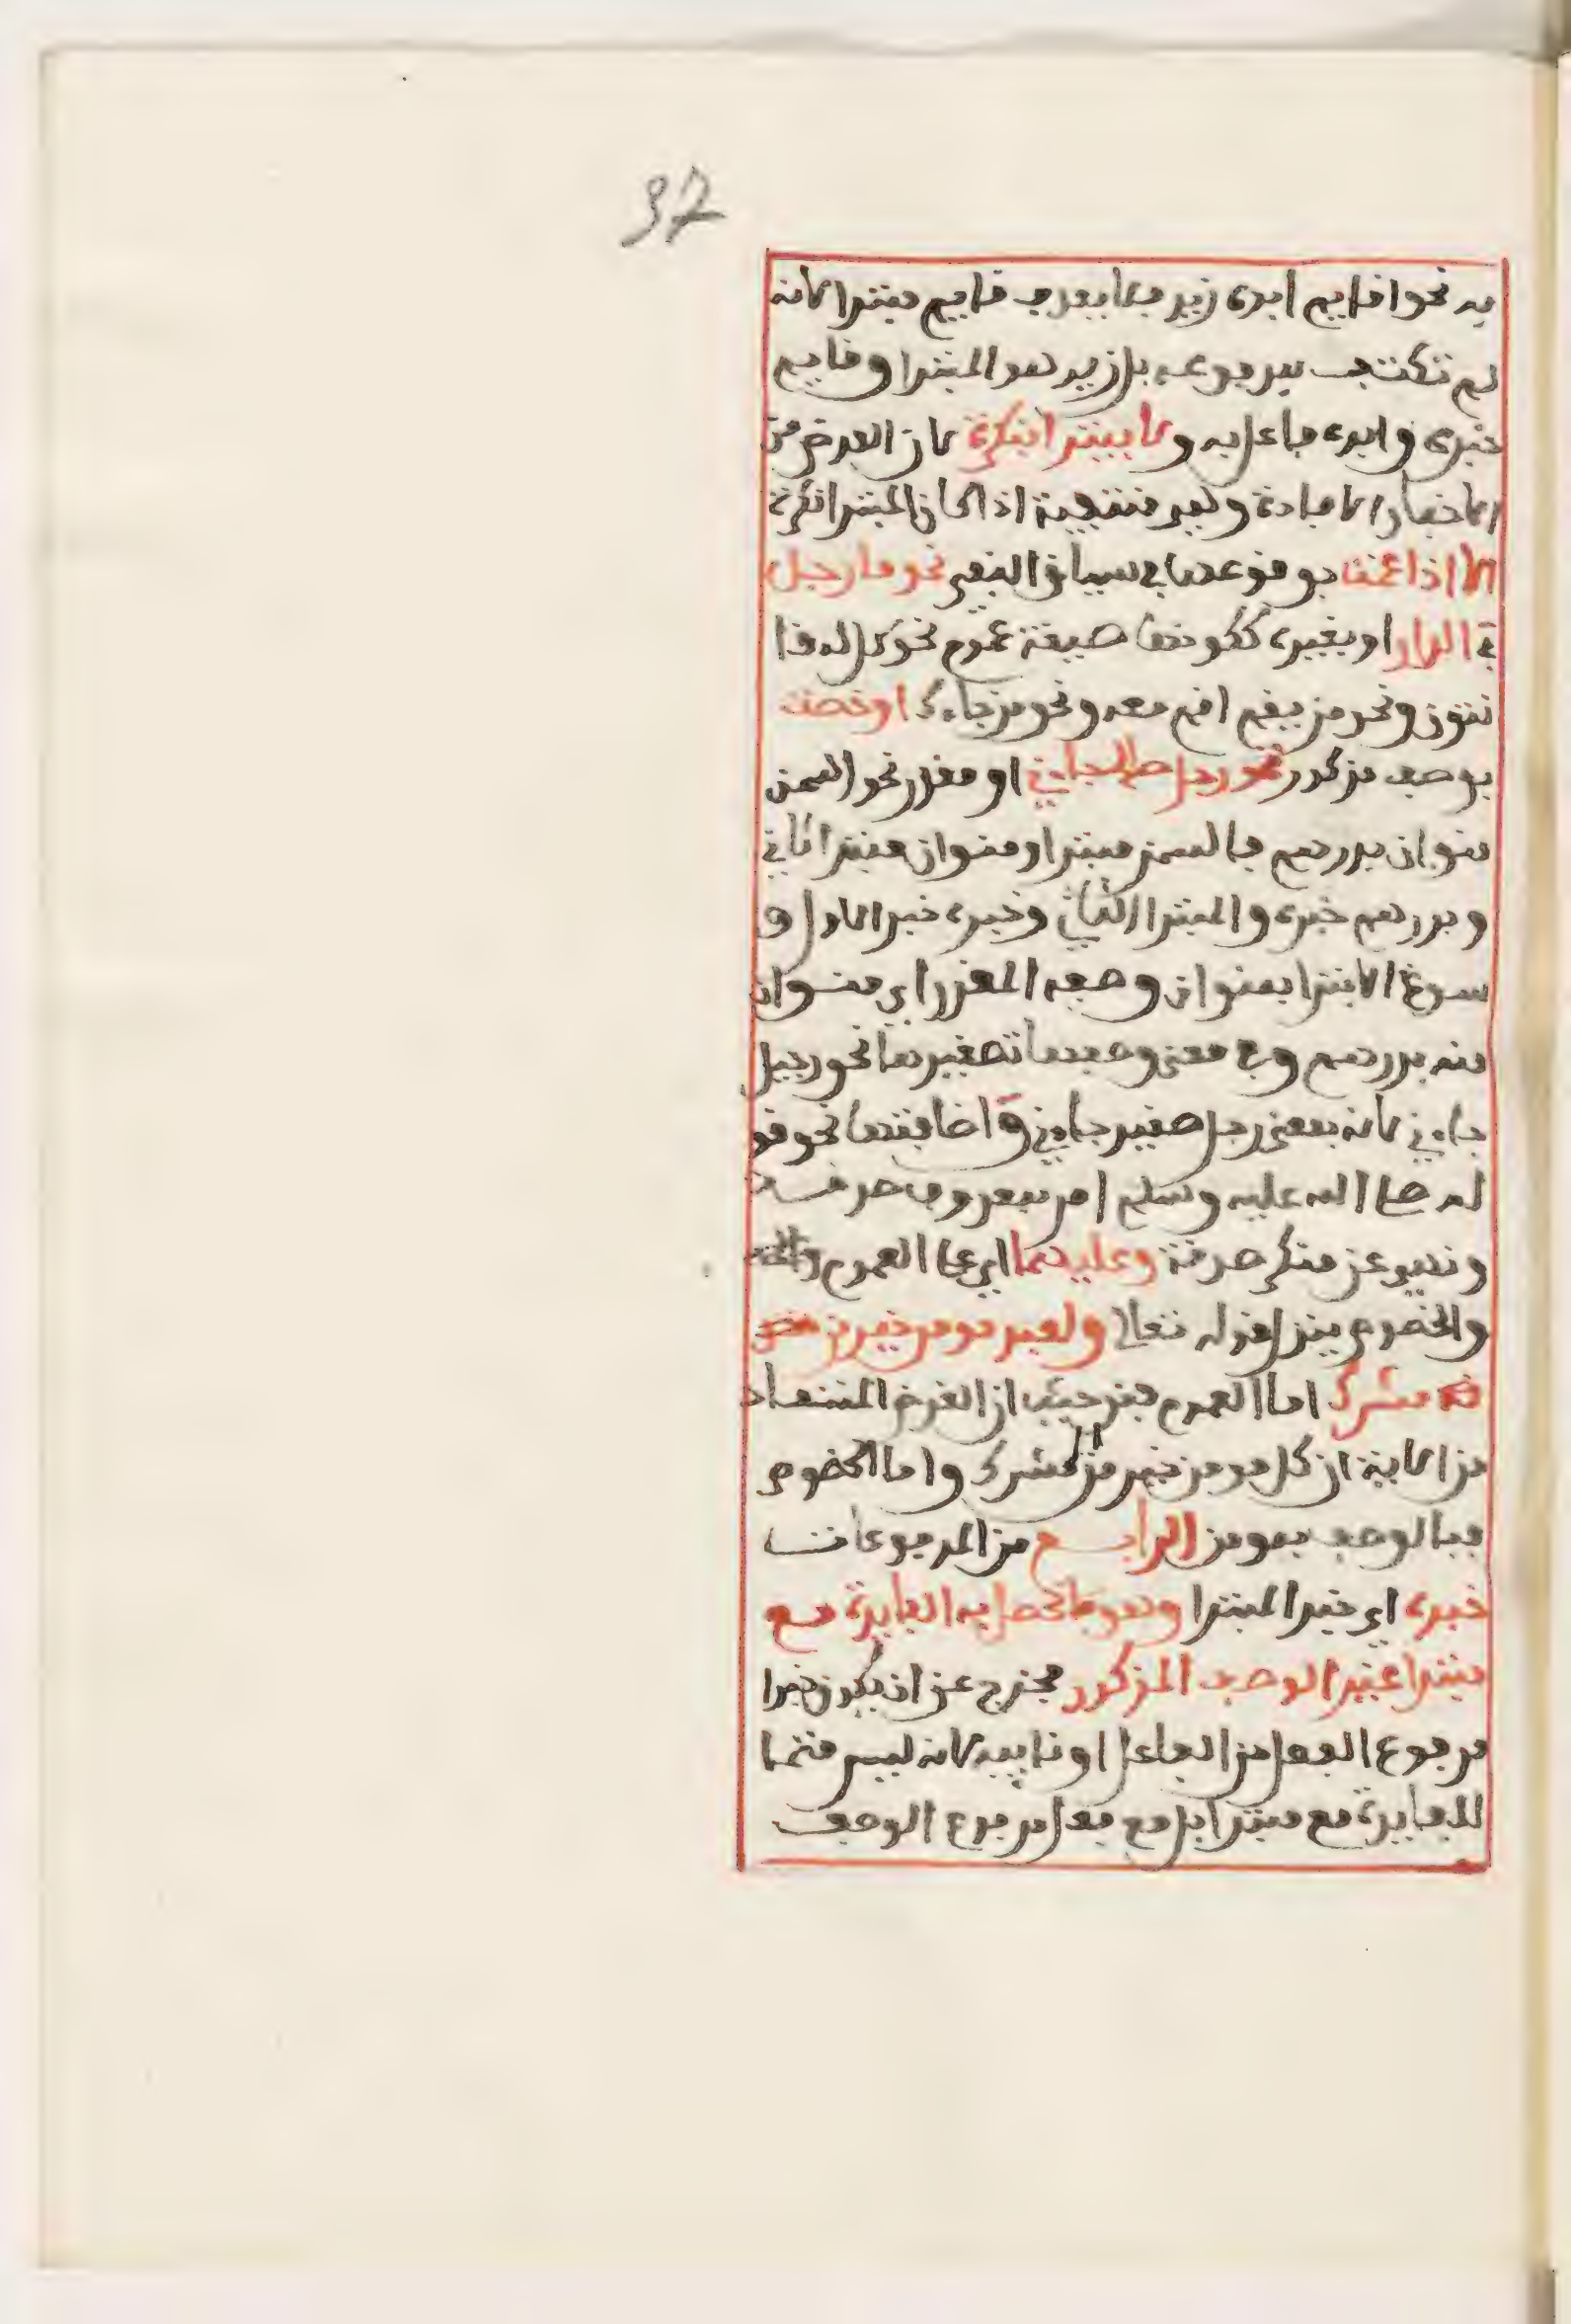 37
به نحو اقايم ابوه زيد فلا يعرب قايم مبتدا لانه
لم تكتف بمرفوعه بل زيد هو المبتدا وقايم
خبره وابوه فاعل به ولا يبتدا بنكرة لان الغرض من
الاخبار الافادة وهي منتفية اذا كان المبتدا نكرة
الا اذا عمت بوقوعها في سياق النفي نحو ما رجل
في الدار او بغيره ككونها صيغة عموم نحو كل له قا
نتون ونحو من يقم اقم معه ونحو من جاءك او خصت
بوصف مذكور نحو رجل صالح جاءني او مقدر نحو السمن
منوان بدرهم فالسمن مبتدا ومنوان مبتدا ثاني
وبدرهم خبره والمبتدا الثاني وخبره خبر الاول و
سوغ الابتدا بمنوان وصفه المقدر اي منوان
منه بدرهم وفي معنى وصفها تصغيرها نحو رجيل
جاءني لانه بمعنى رجل صغير جاءني واضافتها نحو قو
له صلى الله عليه وسلم امر بمعروف صدقة
ونهيو عن منكر صدقة وعليهما اي على العموم
والخصوص يتنزل قوله تعالى ولعبد مومن خير من
مشرك اما العموم فمن حيث ان الغرض المستفاد
من الاية ان كل مومن خير من المشرك واما الخصوص
فبالوصف بمومن الرابع من المرفوعات
خبره اي خبر المبتدا وهو ما تحصل به الفايدة مع
مبتدا غير الوصف المذكور فخرج عن ان يكون خبرا
مرفوع الفعل من الفاعل او نايبه لانه ليس متمما
للفايدة مع مبتدا بل مع فعل مرفوع الوصف